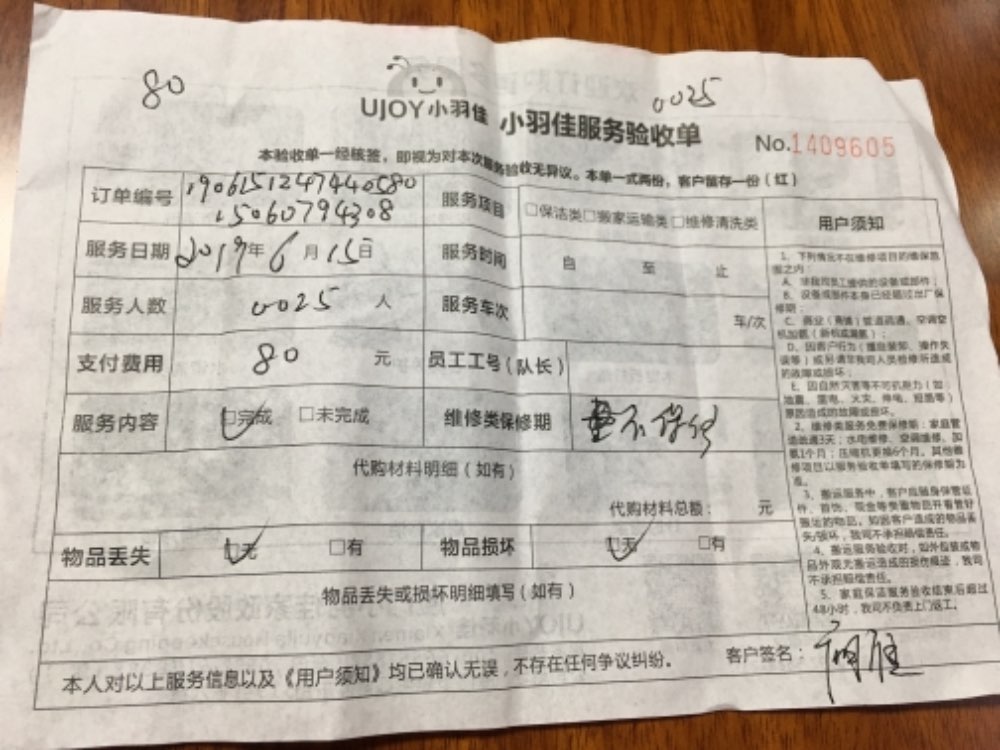 80
0025
UJOY小羽佳 小羽佳服务验收单
No.1409605
本验收单一经核签,即视为对本次服务验收无异议。本单一式两份,客户留存一份(红)
订单编号 1906151247440580
15060794308
服务项目 □保洁类□搬家运输类□维修清洗类
用户须知
服务日期 2019年6月15日
服务时间 自 至 止
服务人数 0025 人
服务车次 车/次
支付费用 80 元
员工工号(队长)
服务内容 □完成 □未完成
维修类保修期 不保修
代购材料明细(如有)
代购材料总额: 元
物品丢失 □无 □有
物品损坏 □无 □有
物品丢失或损坏明细填写(如有)
1、下列情况不在维修项目的维保范
围之内:
A、非我司员工提供的设备或部件;
B、设备或部件本身已经超过出厂保
修期;
C、商业(商铺)管道疏通、空调空
D、因客户行为(擅自装卸、操作失
误等)或另请非我司人员检修所造成
的故障或损坏;
E、因自然灾害等不可抗力(如
地震、雷电、火灾、停电、短路等)
原因造成的故障或损坏。
2、维修类服务免费保修期:家庭管
道疏通3天;水电维修、空调维修、加
氨1个月;压缩机更换6个月。其他维
修项目以服务验收单填写的保修期为
准。
3、搬运服务中,客户应随身保管证
件、首饰、现金等贵重物品并看管好
搬运的物品。如因客户造成的物品丢
失/破坏,我司不承担赔偿责任。
4、搬运服务验收时,如外包装或物
品外观无搬运造成的损伤痕迹,我司
不承担赔偿责任。
5、家庭保洁服务验收结束后超过
48小时,我司不负责上门返工。
本人对以上服务信息以及《用户须知》均已确认无误,不存在任何争议纠纷。
客户签名: